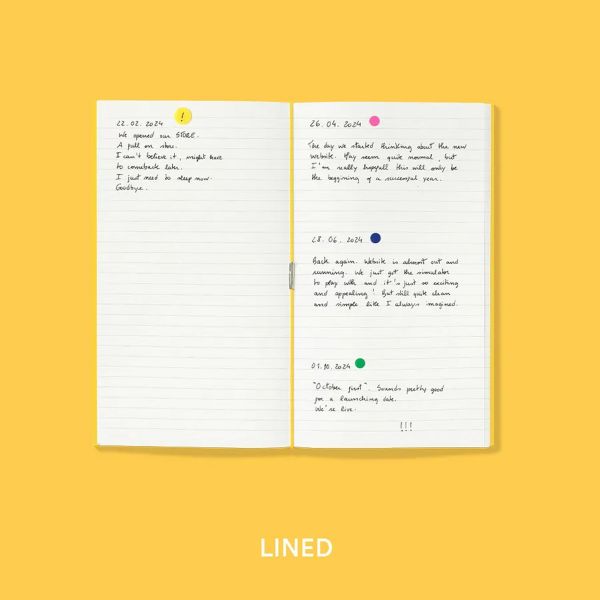 22.02.2024
!
We opened our STORE.
A full on store.
I can't believe it, might have
to comeback later.
I just need to sleep now.
Goodbye.
26.04.2024
The day we started thinking about the new
website. May seem quite normal, but
I'm really hopefull this will only be
the beggining of a successful year.
28.06.2024
Back again. Website is almost out and
running. We just got the simulator
to play with and it's just so exciting
and appealing! But still quite clean
and simple like I always imagined.
01.10.2024
"October first". Sounds pretty good
for a launching date.
We're live.
!!!
LINED